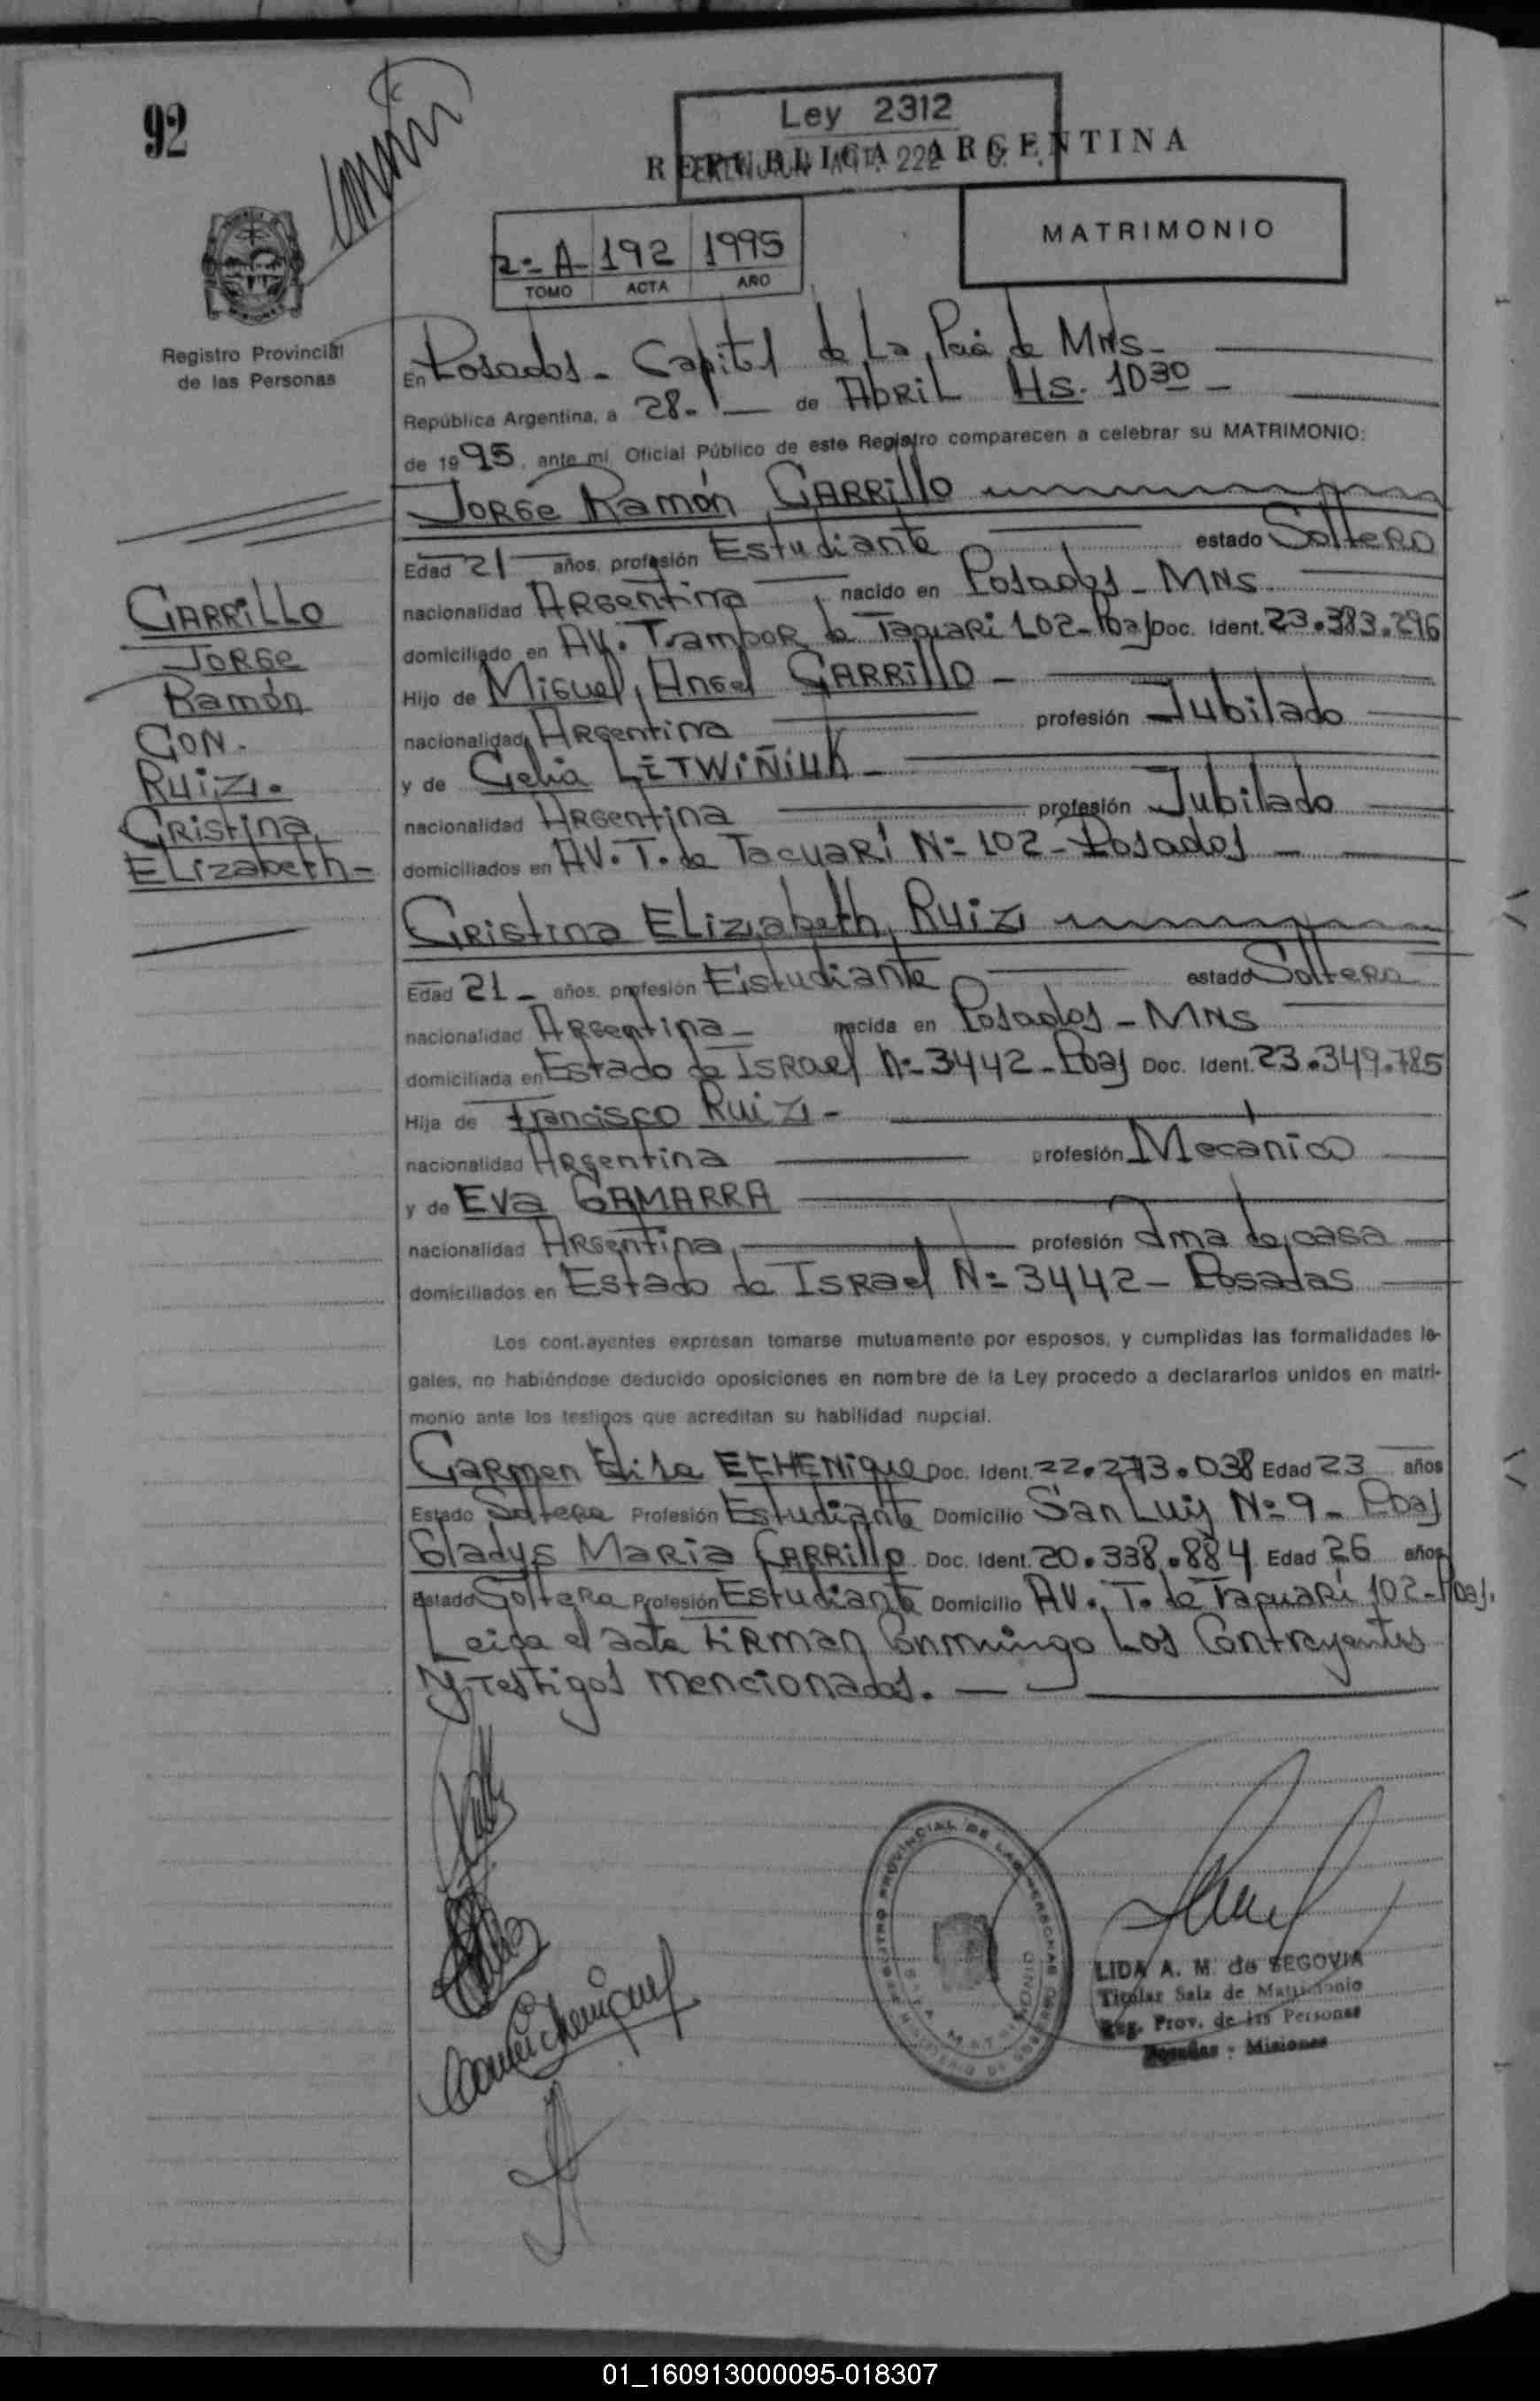 92
Ley 2312
REPUBLICA ARGENTINA
222
MATRIMONIO
2-A 192 1995
TOMO ACTA AÑO
Registro Provincial
de las Personas
En Posadas - Capital de La Pcia de MNs -
República Argentina, a 28.- de Abril Hs. 10 30 -
de 1995, ante mí, Oficial Público de este Registro comparecen a celebrar su MATRIMONIO:
Jorge Ramón CARRILLO
Edad 21 años, profesión Estudiante estado Soltero
nacionalidad Argentina nacido en Posadas - MNs
domiciliado en AV. Tambor de Tacuari 102 - Pdas Doc. Ident. 23.383.296
Hijo de Miguel Angel CARRILLO -
nacionalidad Argentina profesión Jubilado
y de Celia LETWIÑIUK -
nacionalidad Argentina profesión Jubilado
domiciliados en AV. T. de Tacuarí N= 102 - Posadas
Cristina Elizabeth Ruiz
Edad 21 - años, profesión Estudiante estado Soltera
nacionalidad Argentina - nacida en Posadas - MNs
domiciliada en Estado de Israel N= 3442 - Pdas Doc. Ident. 23.349.785
Hija de Francisco Ruiz -
nacionalidad Argentina profesión Mecánico
y de Eva GAMARRA
nacionalidad Argentina profesión Ama de casa
domiciliados en Estado de Israel N= 3442 - Posadas
Los contrayentes expresan tomarse mutuamente por esposos, y cumplidas las formalidades le-
gales, no habiéndose deducido oposiciones en nombre de la Ley procedo a declararlos unidos en matri-
monio ante los testigos que acreditan su habilidad nupcial.
Carmen Elisa ECHENIque Doc. Ident. 22.273.038 Edad 23 años
Estado Soltera Profesión Estudiante Domicilio San Luis N= 9 - Pdas
Gladys María CARRILLO Doc. Ident. 20.338.884 Edad 26 años
Estado Soltera Profesión Estudiante Domicilio AV. T. de Tacuarí 102 - Pdas.
Leida el acta Firman Conmingo Los Contrayentes
y Testigos mencionados. -
CARRILLO
Jorge
Ramón
CON.
Ruiz.
Cristina
Elizabeth -
REGISTRO PROVINCIAL DE LAS PERSONAS
LIDA A. M. de SEGOVIA
Titular Sala de Matrimonio
Reg. Prov. de las Personas
Posadas - Misiones
01_160913000095-018307